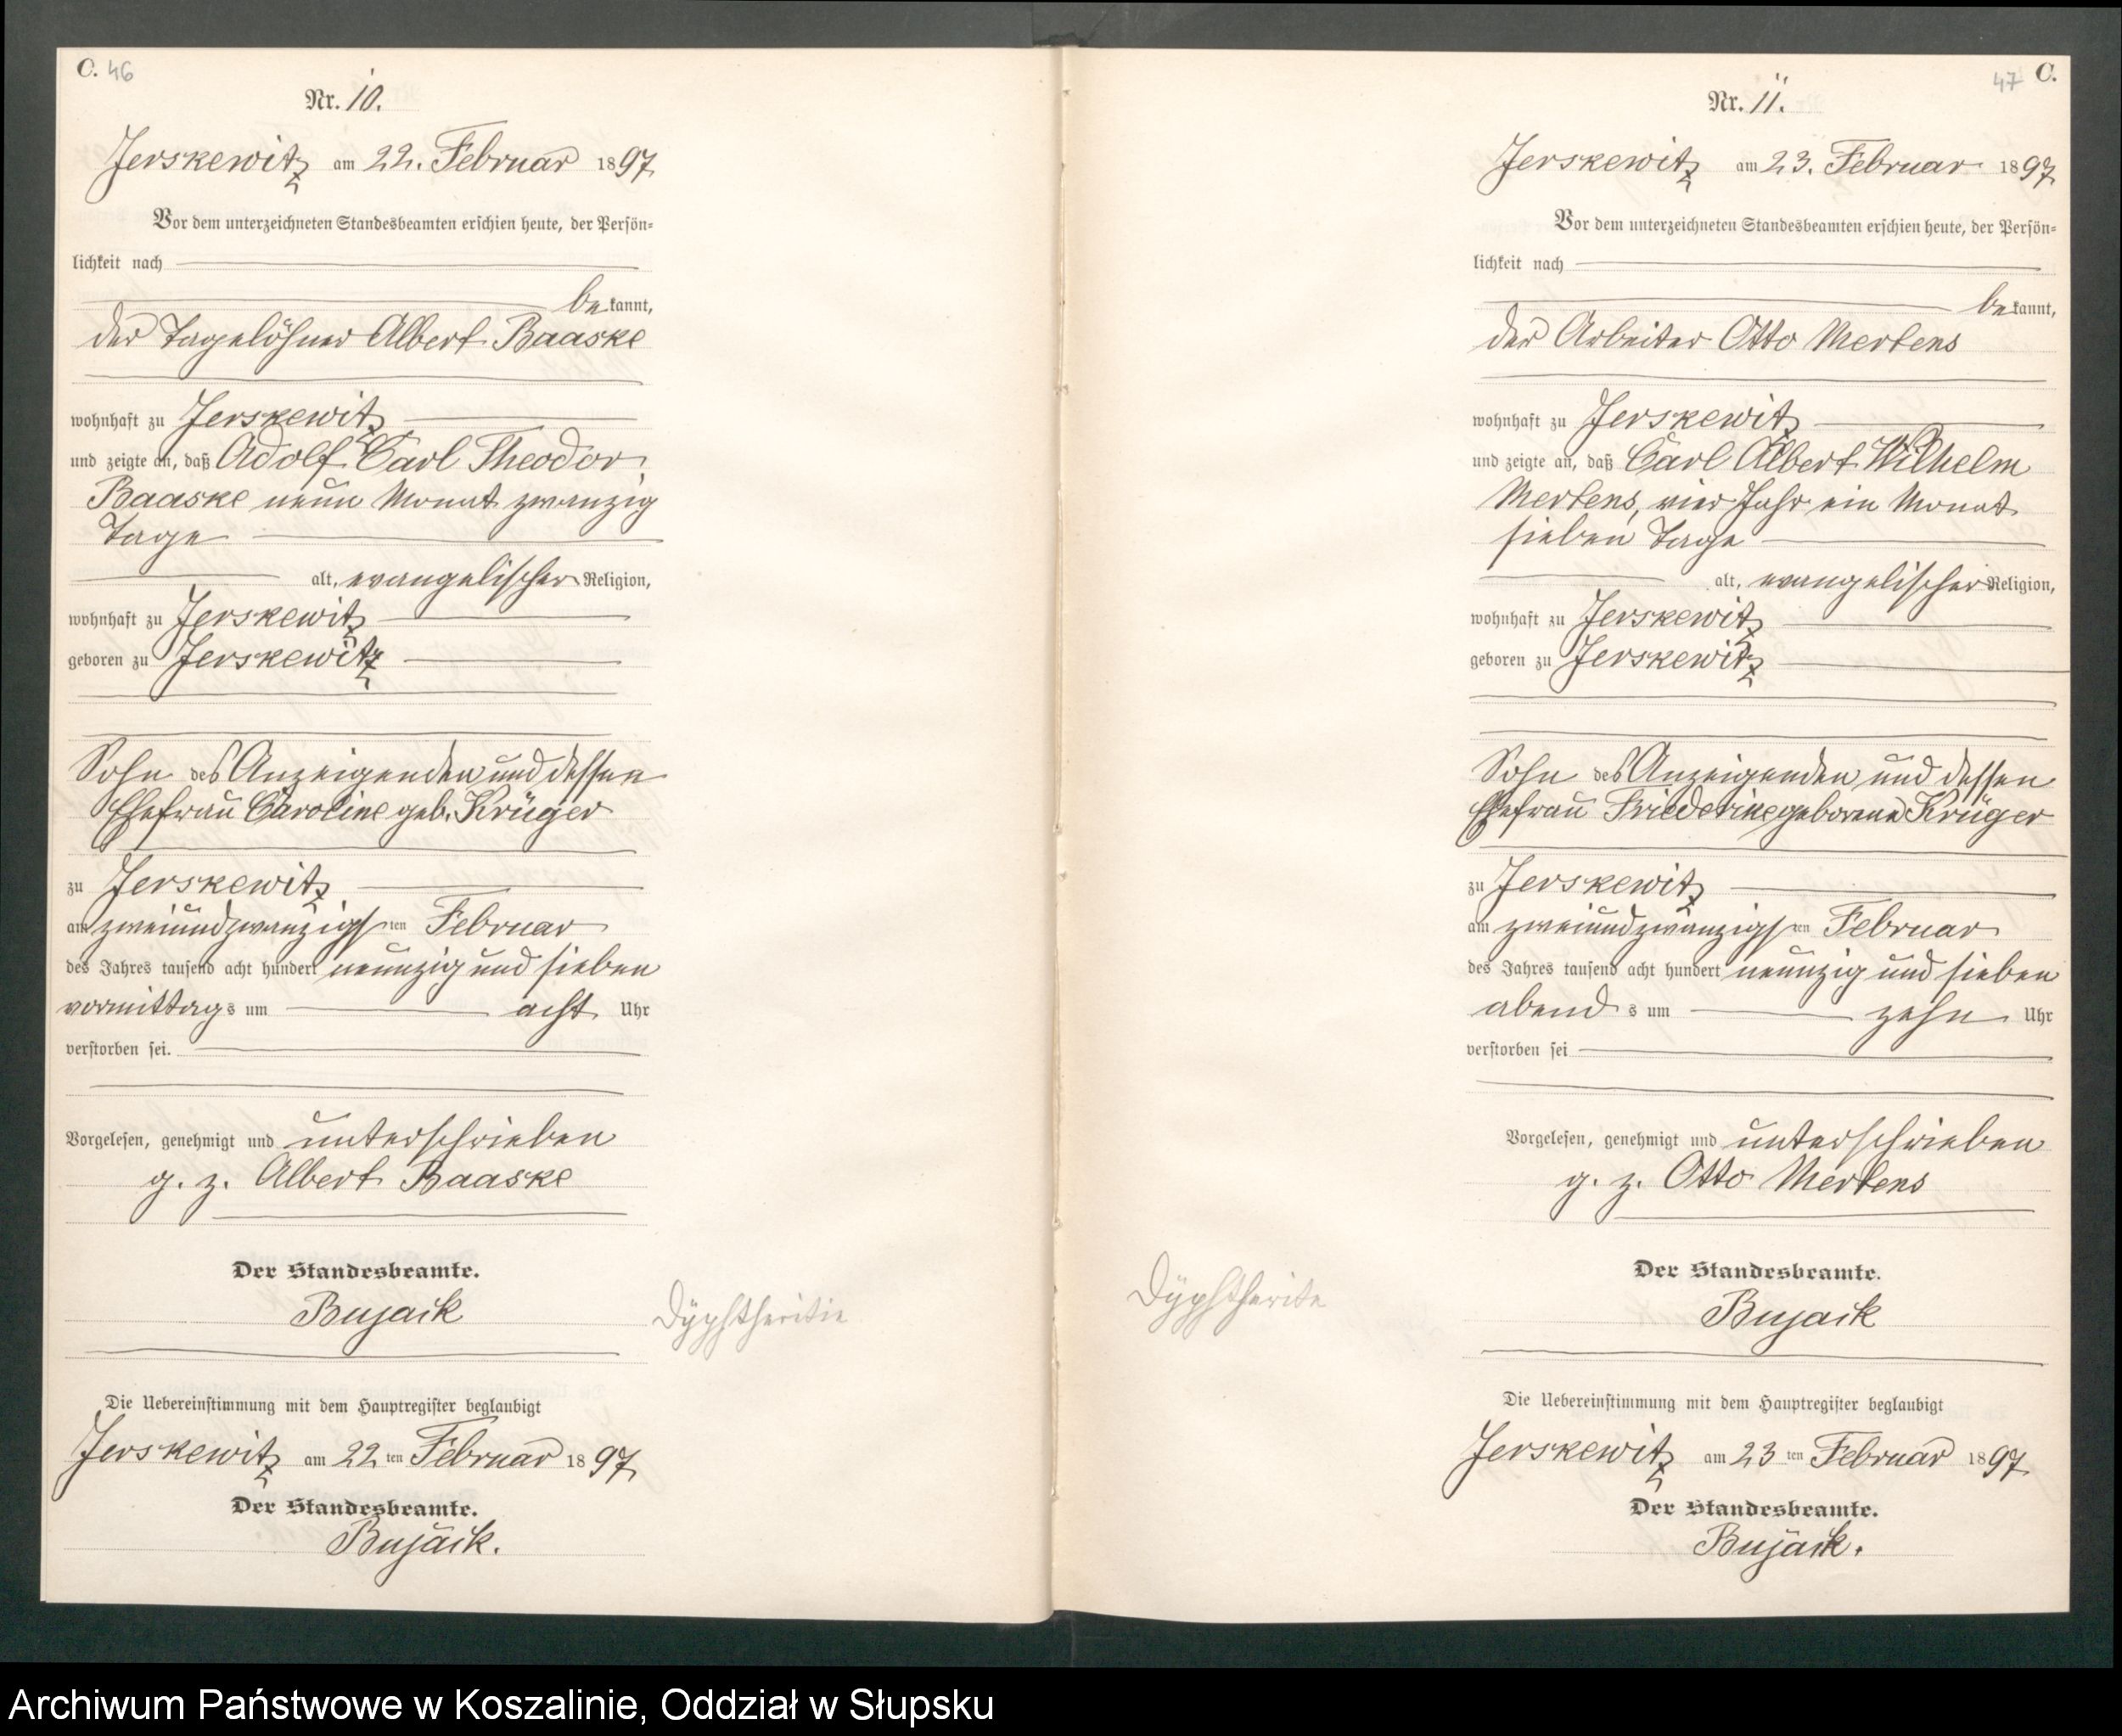 C. 46
Nr. 10.
Jerskewitz am 22. Februar 1897
Vor dem unterzeichneten Standesbeamten erschien heute, der Persön-
lichkeit nach
bekannt,
der Tagelöhner Albert Baaske
wohnhaft zu Jerskewitz
und zeigte an, daß Adolf Carl Theodor
Baaske neun Monat zwanzig
Tage
alt, evangelischer Religion,
wohnhaft zu Jerskewitz
geboren zu Jerskewitz
Sohn des Anzeigenden und dessen
Ehefrau Caroline geb. Krüger
zu Jerskewitz
am zweiundzwanzigsten Februar
des Jahres tausend acht hundert neunzig und sieben
vormittags um acht Uhr
verstorben sei.
Vorgelesen, genehmigt und unterschrieben
g. z. Albert Baaske
Der Standesbeamte.
Bujack
Dÿphtheritie
Die Uebereinstimmung mit dem Hauptregister beglaubigt
Jerskewitz am 22ten Februar 1897
Der Standesbeamte.
Bujack.
47 C.
Nr. 11.
Jerskewitz am 23. Februar 1897
Vor dem unterzeichneten Standesbeamten erschien heute, der Persön-
lichkeit nach
bekannt,
der Arbeiter Otto Mertens
wohnhaft zu Jerskewitz
und zeigte an, daß Carl Albert Wilhelm
Mertens, vier Jahr ein Monat
sieben Tage
alt, evangelischer Religion,
wohnhaft zu Jerskewitz
geboren zu Jerskewitz
Sohn des Anzeigenden und dessen
Ehefrau Friederike geborene Krüger
zu Jerskewitz
am zweiundzwanzigsten Februar
des Jahres tausend acht hundert neunzig und sieben
abends um zehn Uhr
verstorben sei
Vorgelesen, genehmigt und unterschrieben
g. z. Otto Mertens
Der Standesbeamte.
Bujack
Dÿphtherite
Die Uebereinstimmung mit dem Hauptregister beglaubigt
Jerskewitz am 23ten Februar 1897
Der Standesbeamte.
Bujack.
Archiwum Państwowe w Koszalinie, Oddział w Słupsku